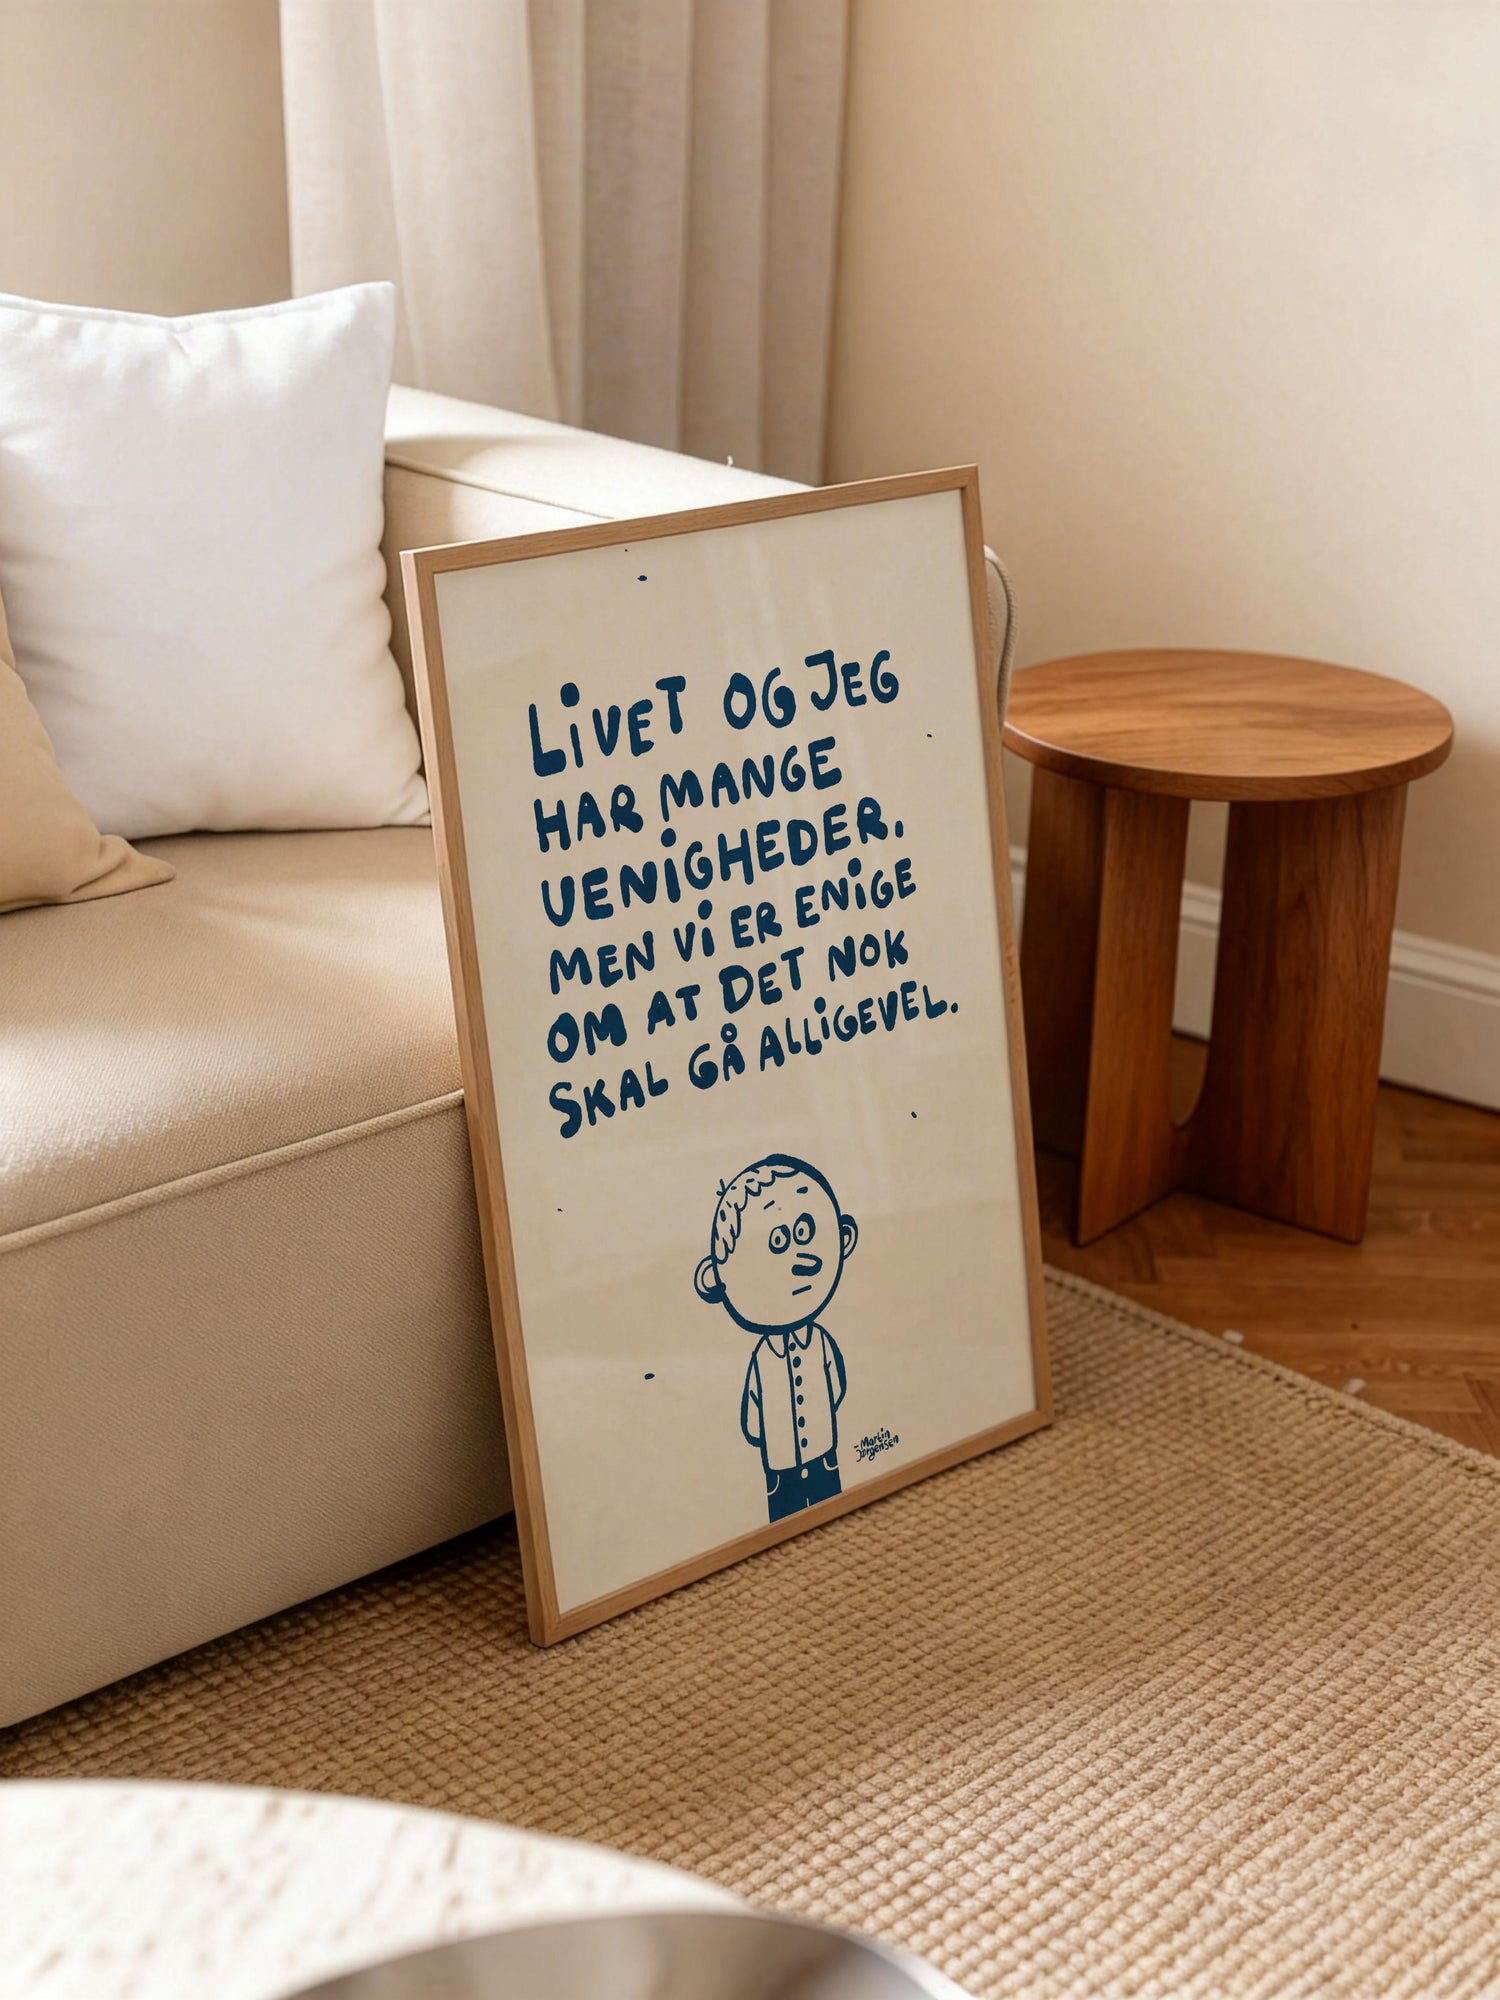 LiVET OG JEG
HAR MANGE
UENiGHEDER.
MEN Vi ER ENiGE
OM AT DET NOK
SKAL GÅ ALLiGEVEL.
- Martin
Jørgensen